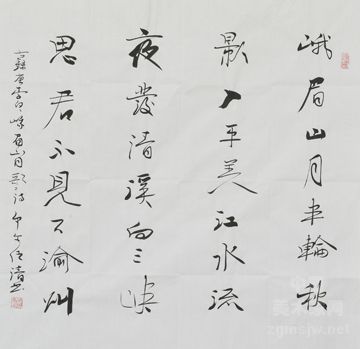 峨眉山月半輪秋
影入平羌江水流
夜發清溪向三峡
思君不見下渝州
李白峨眉山月歌诗
美术家网
zgmsjw.net